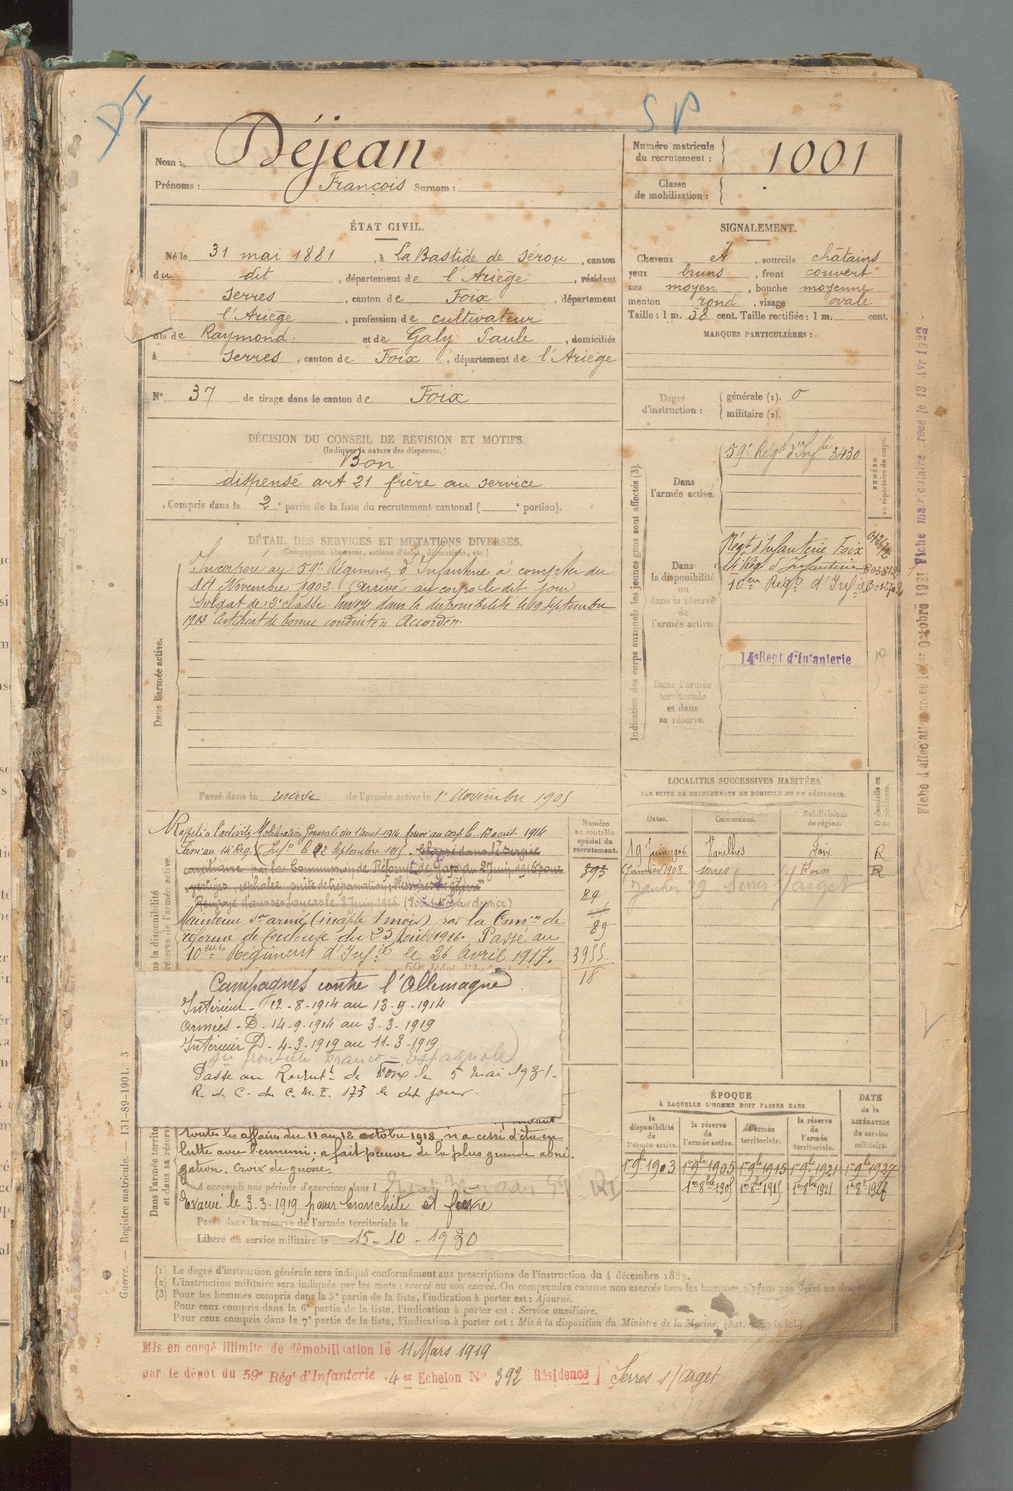 DI
SP
Nom : Déjean
Prénoms : François Surnom :
Numéro matricule du recrutement : 1001
Classe de mobilisation :
ÉTAT CIVIL.
Né le 31 mai 1881, à La Bastide de Sérou, canton
du dit, département de l'Ariège, résidant
Serres, canton de Foix, département
l'Ariège, profession de cultivateur
fils de Raymond et de Galy Paule, domiciliés
à Serres, canton de Foix, département de l'Ariège
N° 37 de tirage dans le canton de Foix
SIGNALEMENT.
Cheveux et, sourcils châtains
yeux bruns, front couvert
nez moyen, bouche moyenne
menton rond, visage ovale
Taille : 1 m. 58 cent. Taille rectifiée : 1 m. cent.
MARQUES PARTICULIÈRES :
Degré d'instruction : générale (1). 0
militaire (2).
DÉCISION DU CONSEIL DE REVISION ET MOTIFS.
(Indiquer la nature des dispenses.)
Bon
dispensé art 21 frère au service
Compris dans la 2e partie de la liste du recrutement cantonal ( e portion).
DÉTAIL DES SERVICES ET MUTATIONS DIVERSES.
(Campagnes, blessures, actions d'éclat, décorations, etc.)
Dans l'armée active.
Incorporé au 59e Régiment d'Infanterie à compter du
14 Novembre 1902. Arrivé au corps le dit jour
Soldat de 2e classe. Envoyé dans la disponibilité le 19 septembre
1903 Certificat de bonne conduite Accordé
Passé dans la réserve de l'armée active le 1er Novembre 1905
Indication des corps auxquels les jeunes gens sont affectés (3).
NUMÉRO au répertoire du corps.
Dans l'armée active.
59e Régt d'Infie 3430
Dans la disponibilité ou dans la réserve de l'armée active.
Régt d'Infanterie Foix
14e Régt d'Infanterie
10eme Régt d'Infie
14e Regt d'Infanterie
Dans l'armée territoriale et dans sa réserve.
Fiche matriculaire
LOCALITÉS SUCCESSIVES HABITÉES
PAR SUITE DE CHANGEMENTS DE DOMICILE OU DE RÉSIDENCE.
Dates. Communes. Subdivisions de région. D domicile ou R résidence.
19 Juin 1906 Varilhes Foix R
1908 Serres Foix R
Serres s/arget
Numéro au contrôle spécial du recrutement.
395
84
89
3955
18
Rappelé à l'activité Mobilisation Générale du 1er août 1914. Arrivé au corps le 12 août 1914
Passé au 14e Rég. d'Infie le 12 Septembre 1915. Classé dans le service
auxiliaire par la Commission de Réforme de Gap du 2 Juin 1916 pour
Renvoyé dans ses foyers le 8 Juin 1916
Maintenu sce armé (inapte 1 mois) par la Comon de
réforme de Toulouse du 25 août 1916. Passé au
10eme Régiment d'Infie le 26 Avril 1917.
Campagnes contre l'Allemagne
Intérieur - 12-8-1914 au 13-9-1914
Armées - D. 14-9-1914 au 3-3-1919
Intérieur D - 4-3-1919 au 11-3-1919
frontière Franco-espagnole
Passé au Recrutt de Foix le 5 mai 1931.
R. d. C. du C. M. I. 173 le dit jour.
toutes les affaires du 11 au 18 octobre 1918, n'a cessé d'être en
lutte avec l'ennemi ; a fait preuve de la plus grande abné-
gation. Croix de guerre.
A accompli une période d'exercices dans l
Evacué le 3.3.1919 pour bronchite et fièvre
Passé dans la réserve de l'armée territoriale le
Libéré du service militaire le 15-10-1930
ÉPOQUE
À LAQUELLE L'HOMME DOIT PASSER DANS
la disponibilité de l'armée active. la réserve de l'armée active. l'armée territoriale. la réserve de l'armée territoriale.
DATE de la LIBÉRATION du service militaire.
1er 9bre 1903 1er 9bre 1905 1er 9bre 1915 1er 9bre 1921 1er 9bre 1927
(1) Le degré d'instruction générale sera indiqué conformément aux prescriptions de l'instruction du 4 décembre 1889.
(2) L'instruction militaire sera indiquée par les mots : exercé ou non exercé. On comprendra comme non exercés tous les hommes n'ayant pas
(3) Pour les hommes compris dans la 5e partie de la liste, l'indication à porter est : Ajourné.
Pour ceux compris dans la 6e partie de la liste, l'indication à porter est : Service auxiliaire.
Pour ceux compris dans la 7e partie de la liste, l'indication à porter est : Mis à la disposition du Ministre de la Marine.
Guerre. — Registre matricule. 131-89-1901. 3
Mis en congé illimité de démobilisation le 11 Mars 1919
par le dépôt du 59e Régt d'Infanterie 4er Echelon N° 392 Résidence Serres s/arget